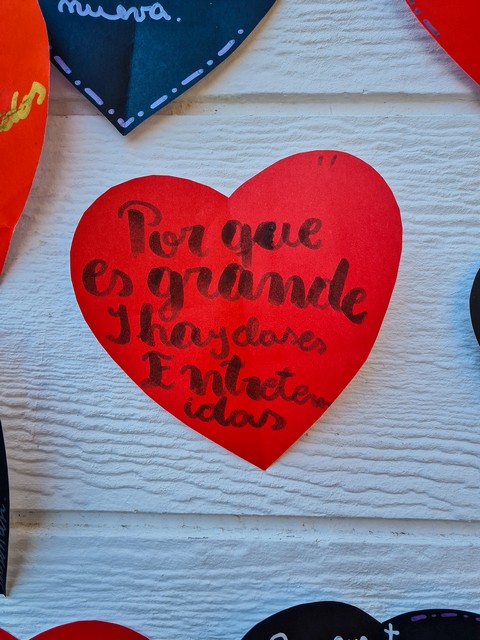 nueva.
"
Por que
es grande
I hay clases
Entreten
idas